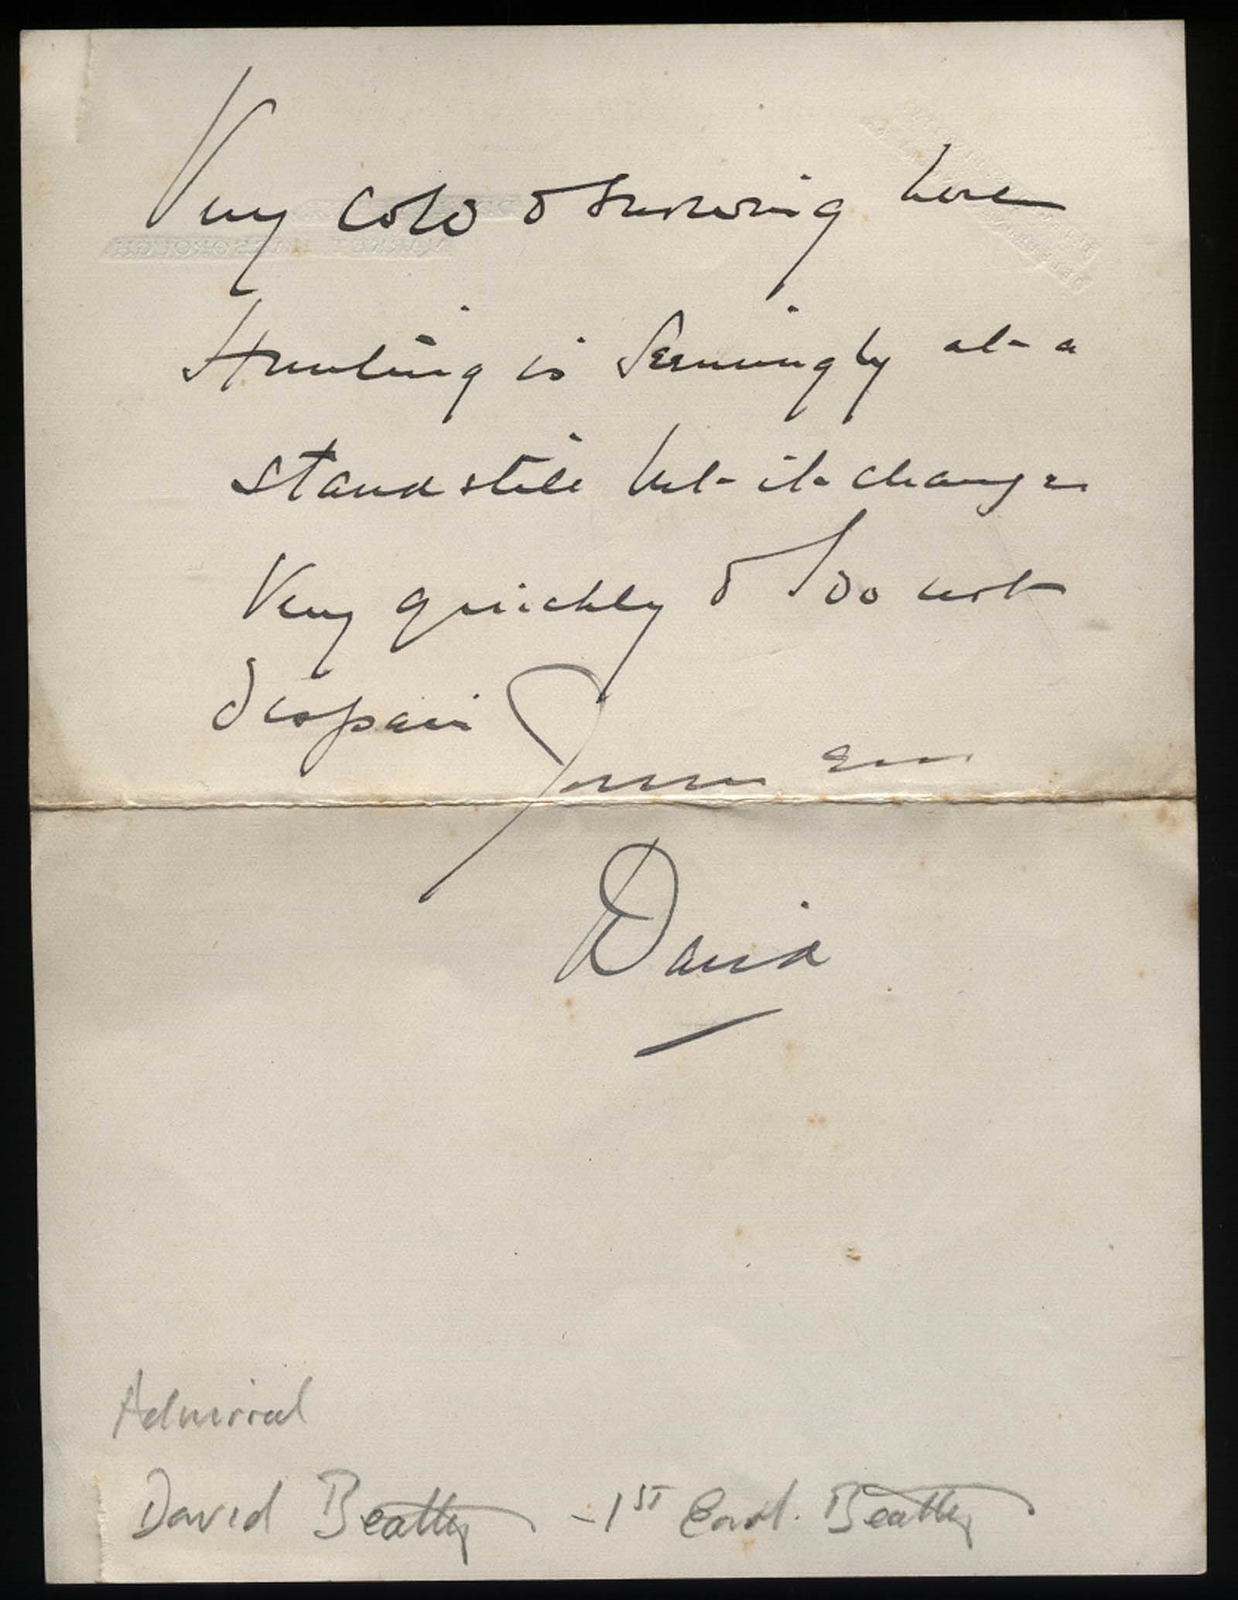 Very cold & snowing here
Hunting is seemingly at a
standstill but it changes
very quickly & I do not
despair
Yours Ever
David
Admiral
David Beatty - 1ST Earl. Beatty